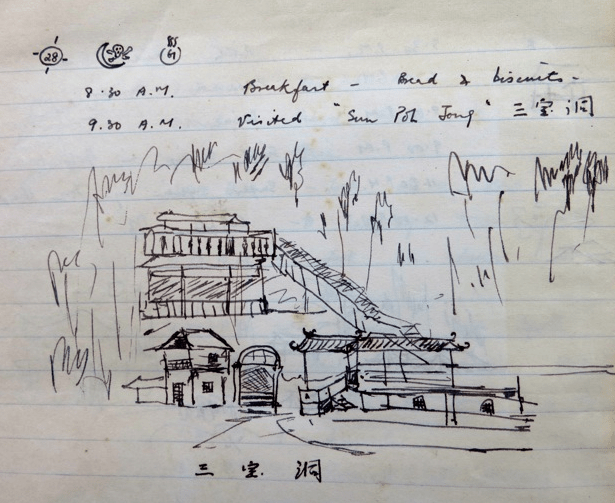 28 85 G1
8.30 A.M. Breakfast - Bread & biscuits.
9.30 A.M. Visited "Sam Poh Tong" 三宝洞
三宝洞